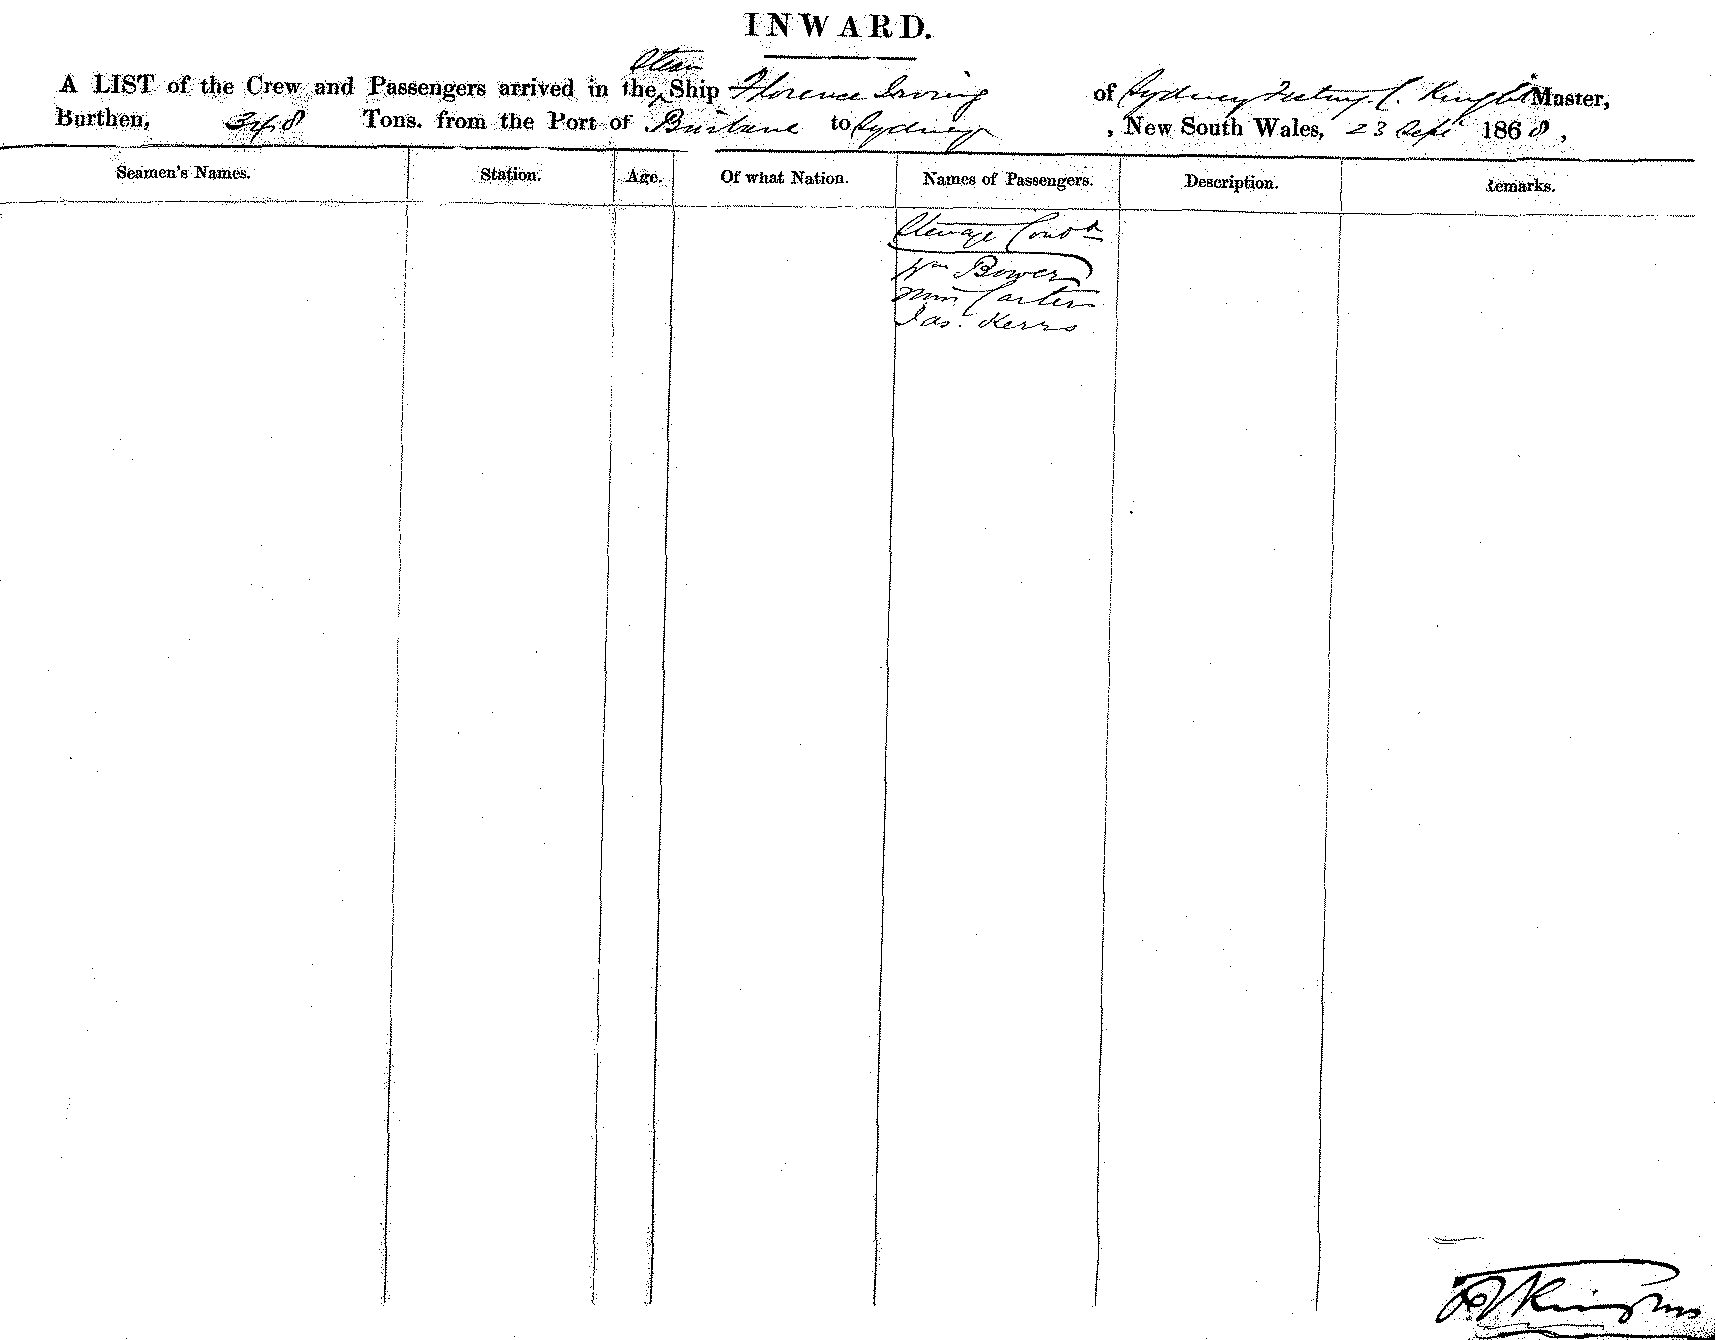 INWARD.
Steam
A LIST of the Crew and Passengers arrived in the Ship Florence Irving of Sydney Master,
Burthen, 348 Tons. from the Port of Brisbane to Sydney, New South Wales, 23 Sept 1868,
Seamen's Names. Station. Age. Of what Nation. Names of Passengers. Description. Remarks.
Steerage Contd
Wm Bower
Carter
Jas. Kerrs